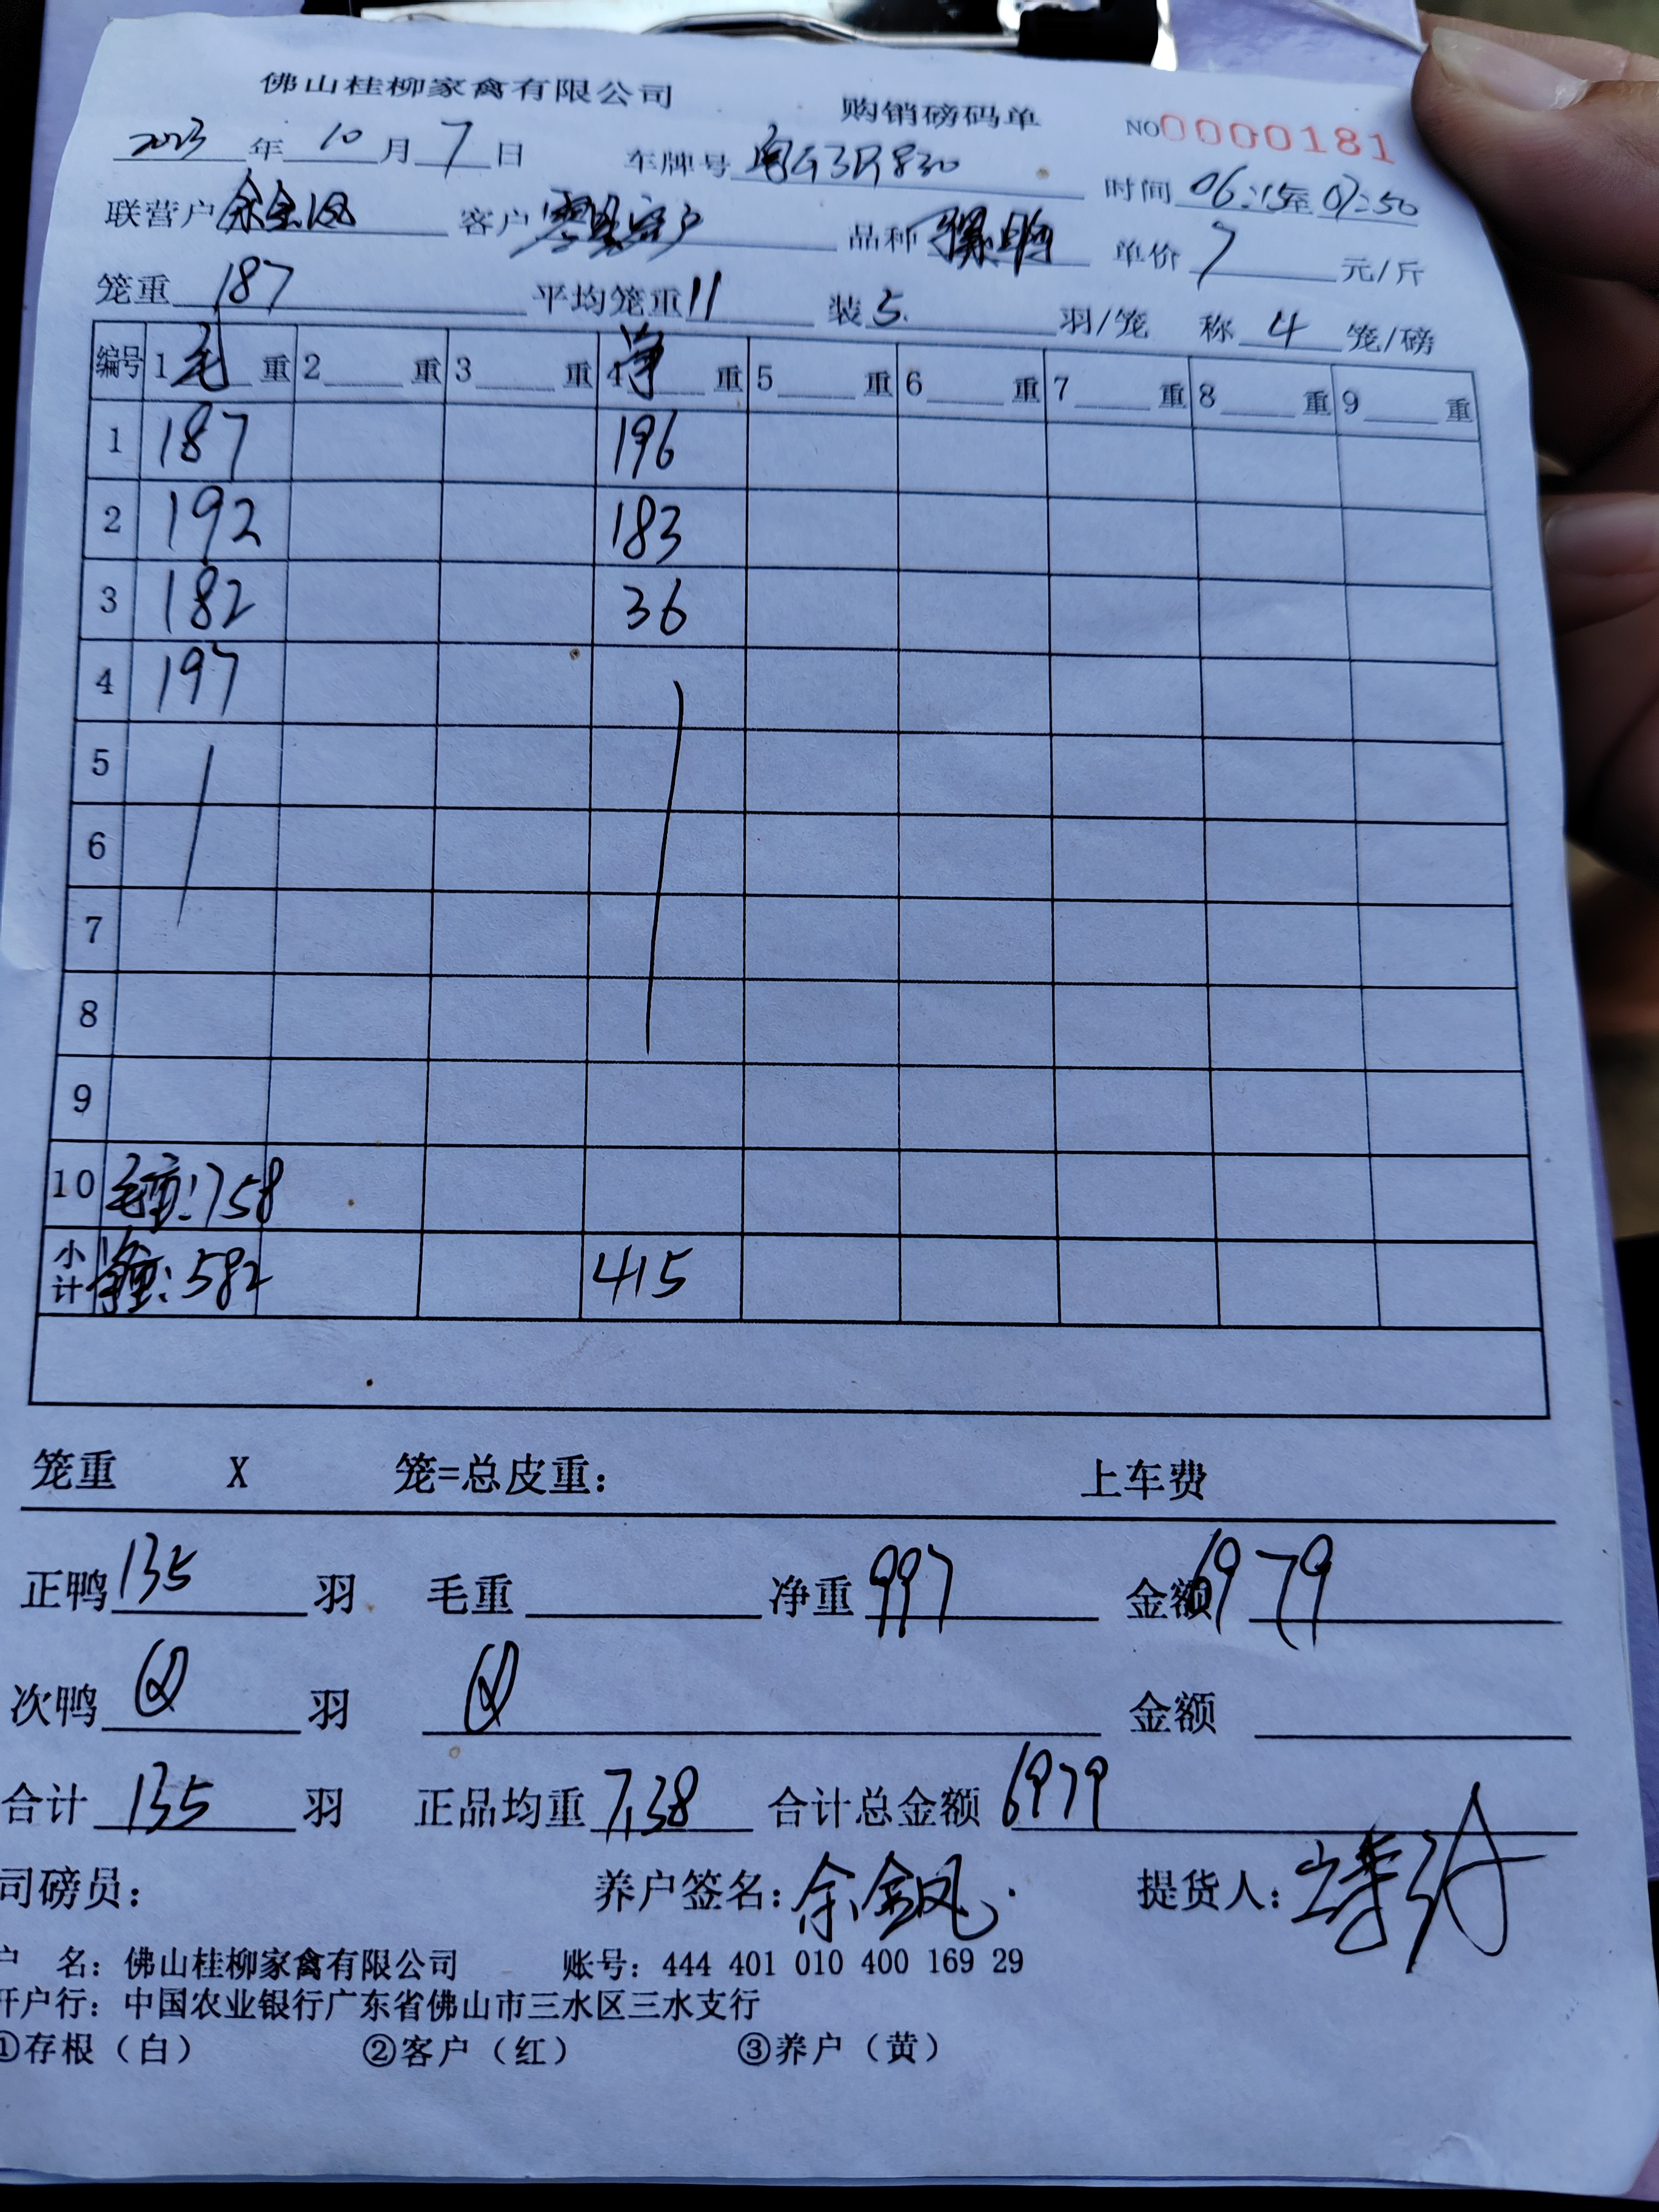 佛山桂柳家禽有限公司 购销磅码单 NO0000181
2023年10月7日 车牌号粤G3R830 时间06:15至07:50
联营户余金凤 客户零售客户 品种 单价7元/斤
笼重187 平均笼重11 装5.羽/笼 称4笼/磅
编号 1毛重 2重 3重 4净重 5重 6重 7重 8重 9重
1 187 196
2 192 183
3 182 36
4 197
5
6
7
8
9
10 毛重:758
小计 净重:582 415
笼重 X 笼=总皮重: 上车费
正鸭135羽 毛重 净重997 金额6979
次鸭 羽 金额
合计135羽 正品均重7.38 合计总金额6979
司磅员: 养户签名:余金凤. 提货人:
户 名:佛山桂柳家禽有限公司 账号:444 401 010 400 169 29
开户行:中国农业银行广东省佛山市三水区三水支行
①存根(白) ②客户(红) ③养户(黄)